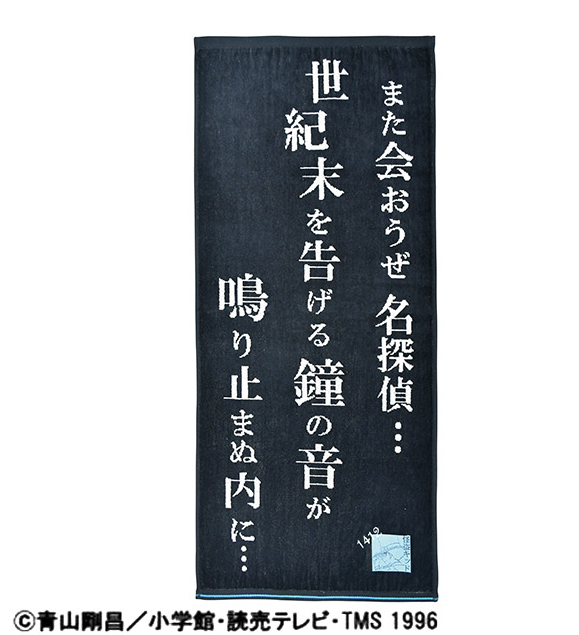 また会おうぜ 名探偵…
世紀末を告げる鐘の音が
鳴り止まぬ内に…
1412
怪盗キッド
©青山剛昌／小学館・読売テレビ・TMS 1996